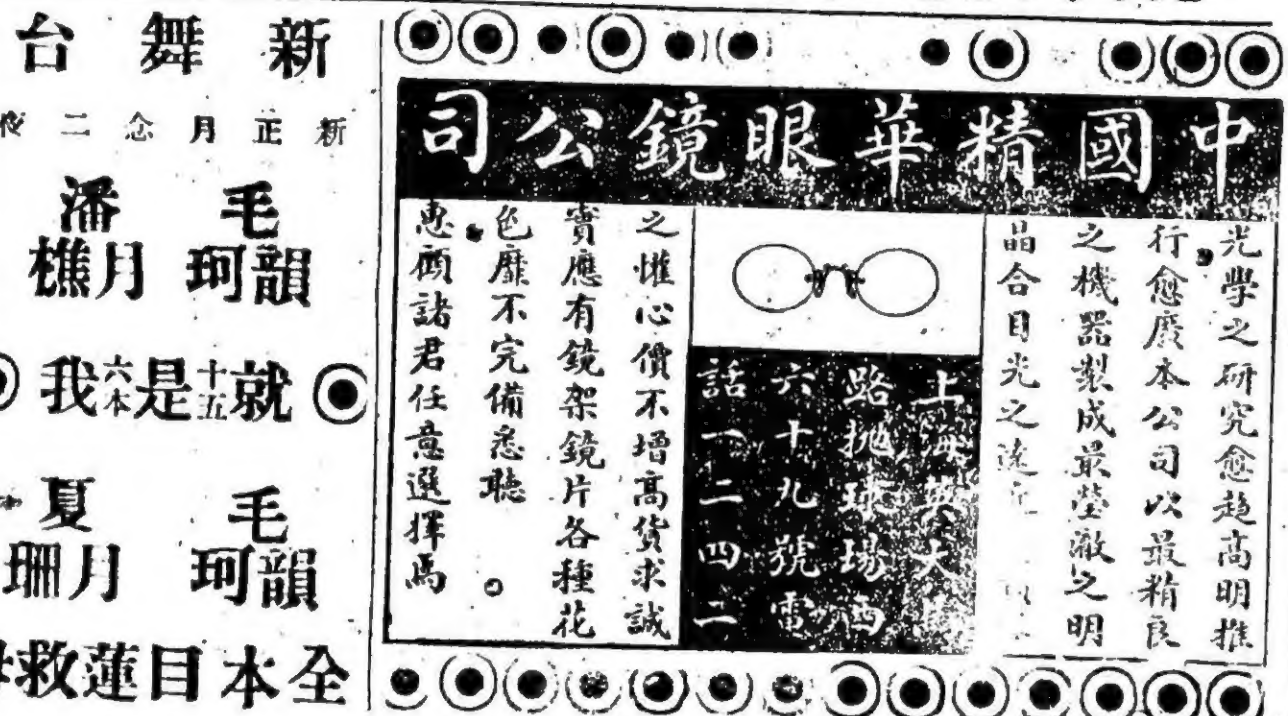 中國精華眼鏡公司
光學之研究愈趨高明推
行愈廣本公司以最精良
之機器製成最瑩澈之明
晶合目光之遠近
上海英大
路拋球場西
六十九號電
話一二四二
之懽心價不增高貨求誠
實應有鏡架鏡片各種花
色靡不完備悉聽
惠顧諸君任意選擇焉
新舞台
新正月念二夜
毛韻珂
潘月樵
就十五是六本我
毛韻珂
夏月珊
全本目蓮救母